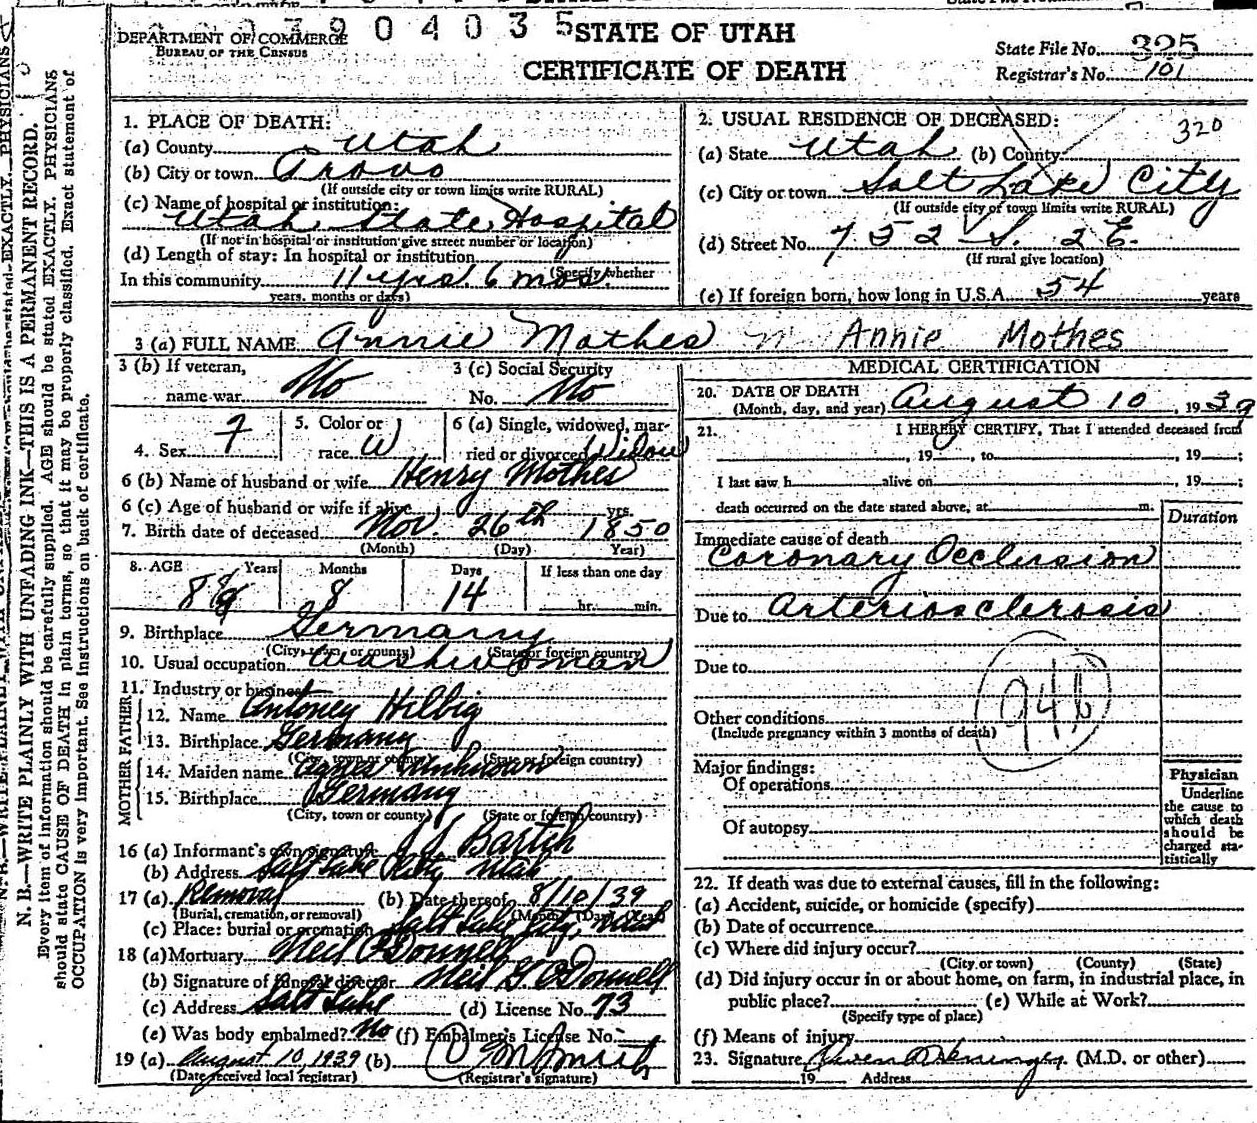 3904035
STATE OF UTAH
DEPARTMENT OF COMMERCE
BUREAU OF THE CENSUS
CERTIFICATE OF DEATH
State File No. 325
Registrar's No. 101
N. B.—WRITE PLAINLY WITH UNFADING INK—THIS IS A PERMANENT RECORD.
Every item of information should be carefully supplied. AGE should be stated EXACTLY. PHYSICIANS
should state CAUSE OF DEATH in plain terms, so that it may be properly classified. Exact statement of
OCCUPATION is very important. See instructions on back of certificate.
1. PLACE OF DEATH:
(a) County Utah
(b) City or town Provo
(If outside city or town limits write RURAL)
(c) Name of hospital or institution:
Utah State Hospital
(If not in hospital or institution give street number or location)
(d) Length of stay: In hospital or institution
(Specify whether
In this community 11 yrs. 6 mos.
years, months or days)
2. USUAL RESIDENCE OF DECEASED:
320
(a) State Utah (b) County
(c) City or town Salt Lake City
(If outside city or town limits write RURAL)
(d) Street No. 752 S. 2 E.
(If rural give location)
(e) If foreign born, how long in U.S.A. 54 years
3 (a) FULL NAME Annie Mathes Annie Mothes
3 (b) If veteran,
name war No
3 (c) Social Security
No. No
4. Sex F
5. Color or
race W
6 (a) Single, widowed, mar-
ried or divorced Widow
6 (b) Name of husband or wife Henry Mothes
6 (c) Age of husband or wife if alive yrs.
7. Birth date of deceased Nov. 26th 1850
(Month) (Day) Year)
8. AGE Years Months Days If less than one day
8 14 hr. min.
9. Birthplace Germany
(City, town or county) (State or foreign country)
10. Usual occupation Washwoman
11. Industry or business
FATHER
12. Name Antoney Hilbig
13. Birthplace Germany
(City, town or county) (State or foreign country)
MOTHER
14. Maiden name Agnes Unknown
15. Birthplace Germany
(City, town or county) (State or foreign country)
16 (a) Informant's own signature
(b) Address Salt Lake City Utah
17 (a) Removal (b) Date thereof 8/10/39
(Burial, cremation, or removal) (Month) (Day) (Year)
(c) Place: burial or cremation Salt Lake City, Utah
18 (a) Mortuary Neil O'Donnell
(b) Signature of funeral director Neil G. O'Donnell
(c) Address Salt Lake (d) License No. 73
(e) Was body embalmed? No (f) Embalmer's License No.
19 (a) August 10, 1939 (b)
(Date received local registrar) (Registrar's signature)
MEDICAL CERTIFICATION
20. DATE OF DEATH
(Month, day, and year) August 10, 1939
21. I HEREBY CERTIFY, That I attended deceased from
, 19 , to , 19 ;
I last saw h alive on , 19 ;
death occurred on the date stated above, at m.
Duration
Immediate cause of death
Coronary Occlusion
Due to Arteriosclerosis
Due to
94b
Other conditions
(Include pregnancy within 3 months of death)
Major findings:
Of operations
Of autopsy
Physician
Underline
the cause to
which death
should be
charged sta-
tistically
22. If death was due to external causes, fill in the following:
(a) Accident, suicide, or homicide (specify)
(b) Date of occurrence
(c) Where did injury occur?
(City or town) (County) (State)
(d) Did injury occur in or about home, on farm, in industrial place, in
public place? (e) While at Work?
(Specify type of place)
(f) Means of injury
23. Signature (M.D. or other)
19 Address